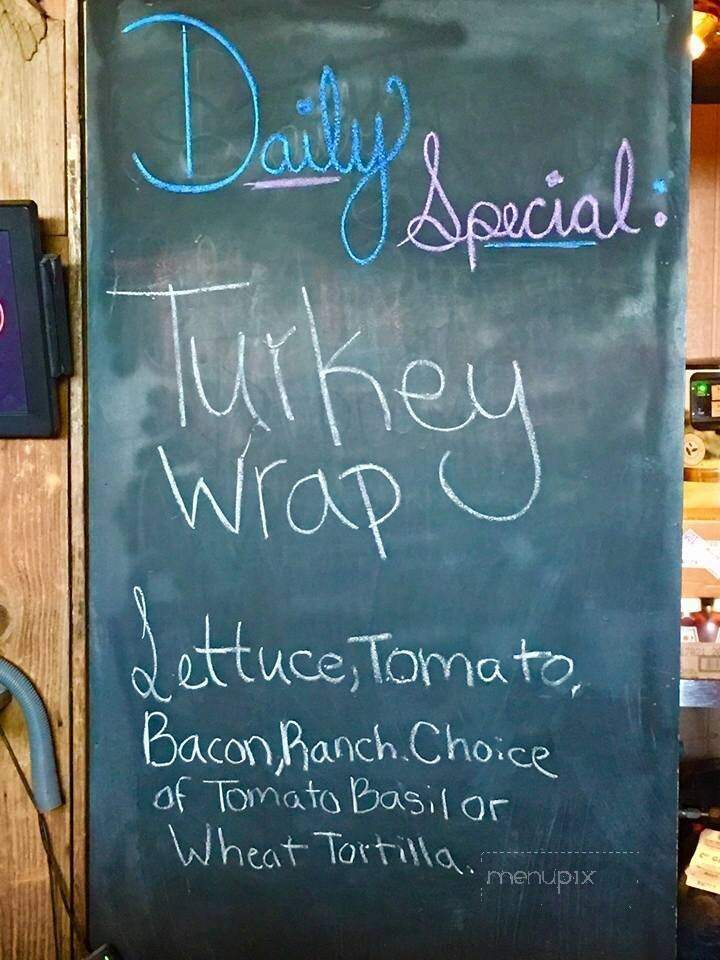 Daily
Special:
Turkey
Wrap
Lettuce, Tomato,
Bacon, Ranch. Choice
of Tomato Basil or
Wheat Tortilla.
menupix